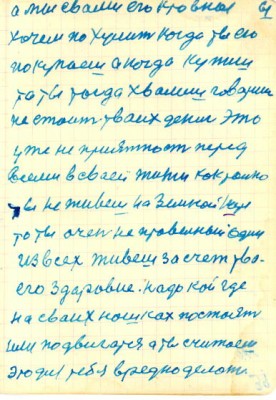 а мы сваим его кровная
хочем по хулит когда ты его
покупаем а когда купиш
то ты тогда хвалиш говориш
не стоит тваих дениг Это
уже не приятност перед
всеми в сваей жизни как ровно
ты не живеш на Земной
то ты очен не провелный один
из всех живеш за счет тво-
его Здаровие. надо кой где
на сваих ношках постоят
или подвигатся а ты считаеш
это для тебя вредно делат